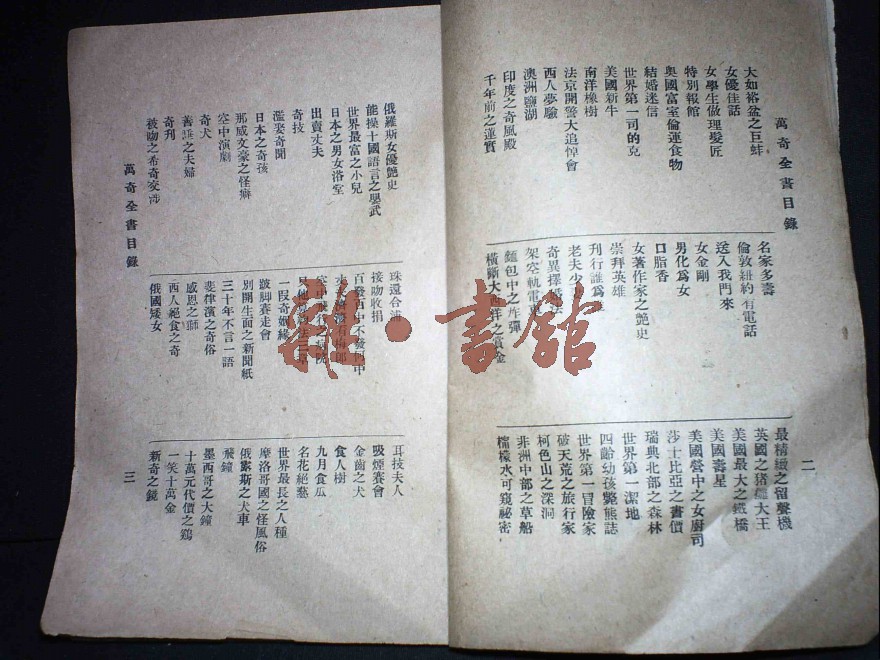 萬奇全書目錄
二
大如裕盆之巨蚌
女優佳話
女學生做理髮匠
特別報館
奧國富室倫運食物
結婚迷信
世界第一司的克
美國新牛
南洋橡樹
法京開警犬追悼會
西人夢驗
澳洲鹽湖
印度之奇風殿
千年前之蓮實
名家多壽
倫敦紐約有電話
送入我門來
女金剛
男化爲女
口脂香
女著作家之艷史
崇拜英雄
刊行誰爲
老夫少
奇異擇
架空軌電車
麵包中之炸彈
橫斷大西洋之賞金
最精緻之留聲機
英國之猪雞大王
美國最大之鐵橋
美國壽星
美國營中之女廚司
莎士比亞之書價
瑞典北部之森林
世界第一潔地
四齡幼孩斃熊誌
世界第一冒險家
破天荒之旅行家
柯色山之深洞
非洲中部之草船
檸檬水可窺祕密
俄羅斯女優艷史
能操十國語言之鸚武
世界最富之小兒
日本之男女浴堂
出賣丈夫
奇技
濫娶奇聞
日本之奇孩
那威文豪之怪癖
空中演劇
奇犬
善睡之夫婦
奇刊
被吻之希奇交涉
珠還合浦
接吻收捐
百發百中不發何中
空中
一段奇姻緣
跛脚賽走會
別開生面之新聞紙
三十年不言一語
斐律濱之奇俗
感恩之獅
西人絕食之奇
俄國矮女
耳技夫人
吸煙賽會
金齒之犬
食人樹
九月食瓜
名花絕藝
世界最長之人種
摩洛哥國之怪風俗
俄羅斯之犬車
飛鐘
墨西哥之大鐘
十萬元代價之鷄
一笑十萬金
新奇之鏡
萬奇全書目錄
三
雜·書館